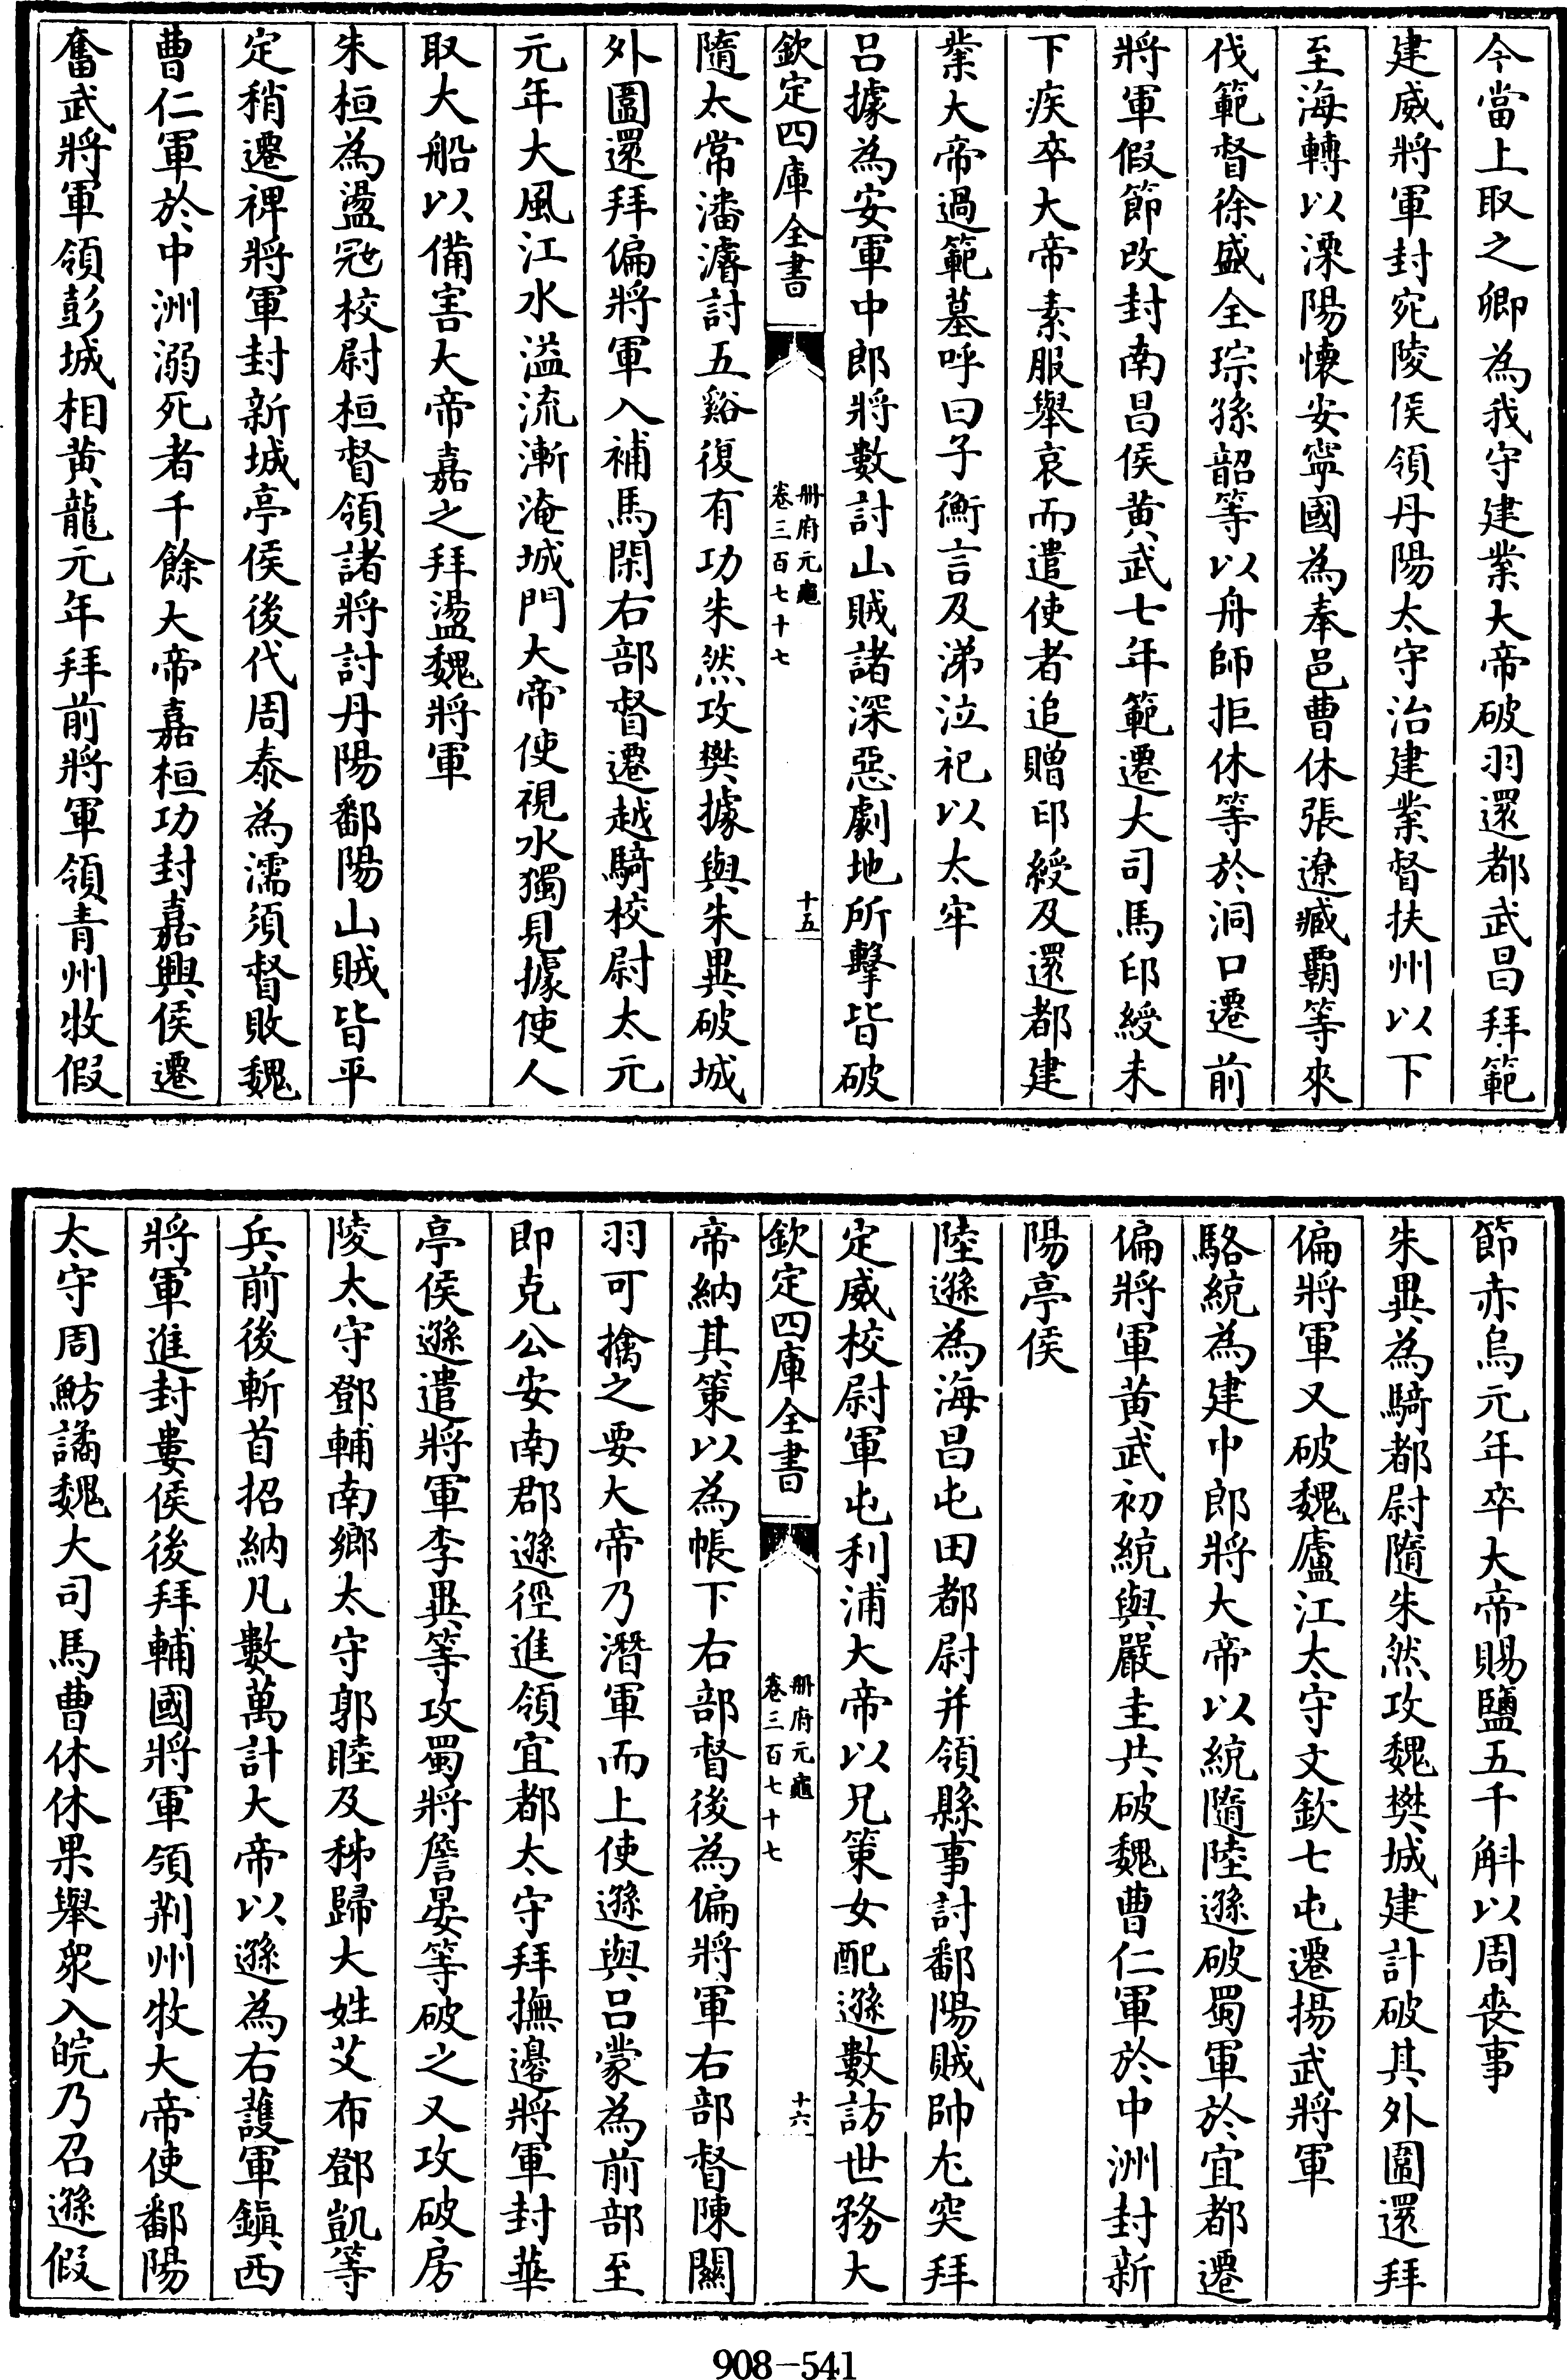 今當上取之卿為我守建業大帝破羽還都武昌拜範
建威將軍封宛陵侯領丹陽太守治建業督扶州以下
至海轉以溧陽懷安寧國為奉邑曹休張遼臧霸等來
伐範督徐盛全琮孫韶等以舟師拒休等於洞口遷前
將軍假節改封南昌侯黄武七年範遷大司馬印綬未
下疾卒大帝素服舉哀而遣使者追贈印綬及還都建
業大帝過範墓呼曰子衡言及涕泣祀以太牢
吕據為安軍中郎將數討山賊諸深惡劇地所擊皆破
欽定四庫全書
册府元龜
卷三百七十七
十五
隨太常潘濬討五谿復有功朱然攻樊據與朱異破城
外圍還拜偏將軍入補馬閑右部督遷越騎校尉太元
元年大風江水溢流漸淹城門大帝使視水獨見據使人
取大船以備害大帝嘉之拜盪魏將軍
朱桓為盪冦校尉桓督領諸將討丹陽鄱陽山賊皆平
定稍遷裨將軍封新城亭侯後代周泰為濡須督敗魏
曹仁軍於中洲溺死者千餘大帝嘉桓功封嘉興侯遷
奮武將軍領彭城相黄龍元年拜前將軍領青州牧假
節赤烏元年卒大帝賜鹽五千斛以周喪事
朱異為騎都尉隨朱然攻魏樊城建計破其外圍還拜
偏將軍又破魏廬江太守文欽七屯遷揚武將軍
駱統為建中郎將大帝以統隨陸遜破蜀軍於宜都遷
偏將軍黄武初統與嚴圭共破魏曹仁軍於中洲封新
陽亭侯
陸遜為海昌屯田都尉并領縣事討鄱陽賊帥尤突拜
定威校尉軍屯利浦大帝以兄策女配遜數訪世務大
欽定四庫全書
册府元龜
卷三百七十七
十六
帝納其策以為帳下右部督後為偏將軍右部督陳關
羽可擒之要大帝乃潛軍而上使遜與吕蒙為前部至
即克公安南郡遜徑進領宜都太守拜撫邊將軍封華
亭侯遜遣將軍李異等攻蜀將詹晏等破之又攻破房
陵太守鄧輔南鄉太守郭睦及秭歸大姓艾布鄧凱等
兵前後斬首招納凡數萬計大帝以遜為右護軍鎮西
將軍進封婁侯後拜輔國將軍領荆州牧大帝使鄱陽
太守周魴譎魏大司馬曹休休果舉衆入皖乃召遜假
908-541